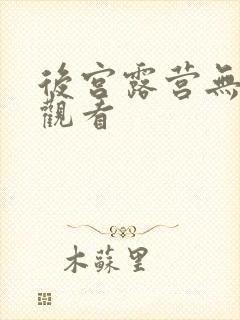 後宮露营無
觀看
木蘇里